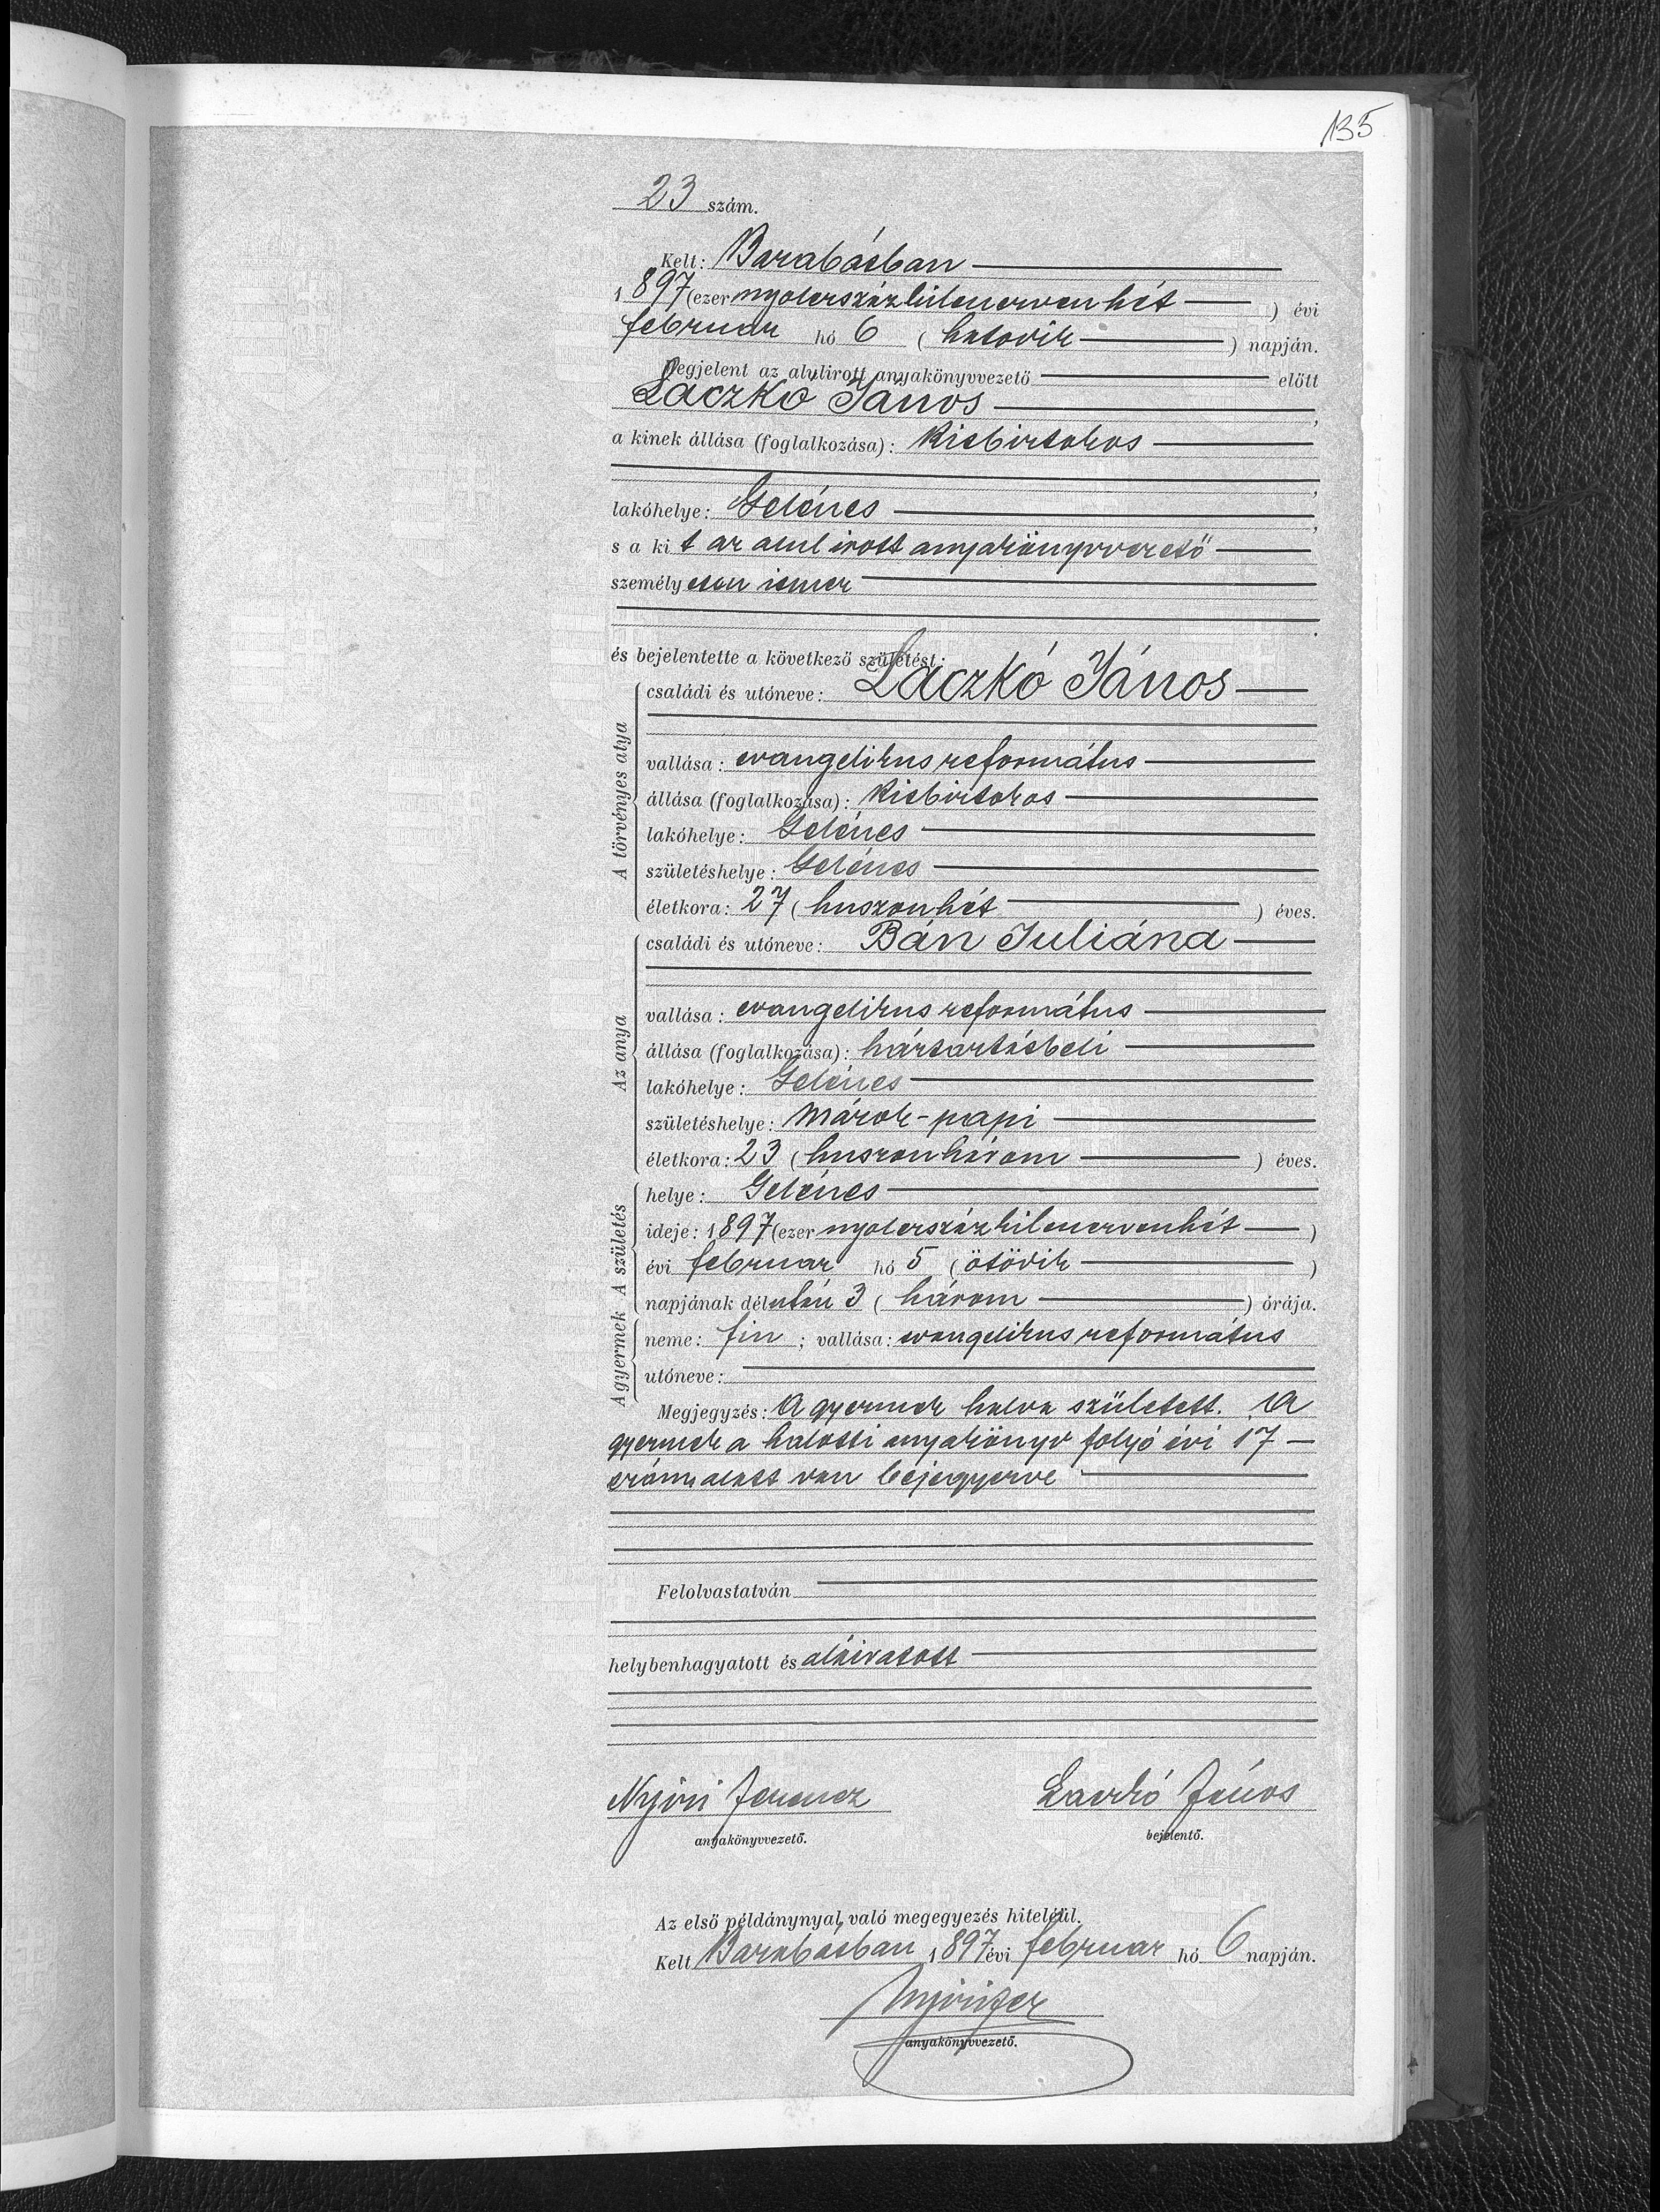 135
23 szám.
Kelt: Barabásban
1897 (ezer nyolczszázkilenczvenhét) évi
februar hó 6 (hatodik) napján.
Megjelent az alulirott anyakönyvvezető előtt
Laczkó János,
a kinek állása (foglalkozása): kisbirtokos
,
lakóhelye: Gelénes,
s a kit az alul irott anyakönyvvezető
személyesen ismer
.
és bejelentette a következő születést:
A törvényes atya
családi és utóneve: Laczkó János
vallása: evangelikus református
állása (foglalkozása): kisbirtokos
lakóhelye: Gelénes
születéshelye: Gelénes
életkora: 27 (huszonhét) éves.
Az anya
családi és utóneve: Bán Juliána
vallása: evangelikus református
állása (foglalkozása): háztartásbeli
lakóhelye: Gelénes
születéshelye: Márok-papi
életkora: 23 (huszonhárom) éves.
A születés
helye: Gelénes
ideje: 1897 (ezer nyolczszázkilenczvenhét)
évi februar hó 5 (ötödik)
napjának délután 3 (három) órája.
A gyermek
neme: fiu; vallása: evangelikus református
utóneve:
Megjegyzés: A gyermek halva született. A
gyermek a halotti anyakönyv folyó évi 17
szám alatt van bejegyezve
Felolvastatván
helybenhagyatott és aláiratott
Nyiri Ferencz Laczkó János
anyakönyvvezető. bejelentő.
Az első példánynyal való megegyezés hiteléül.
Kelt Barabásban 1897 évi februar hó 6 napján.
anyakönyvvezető.